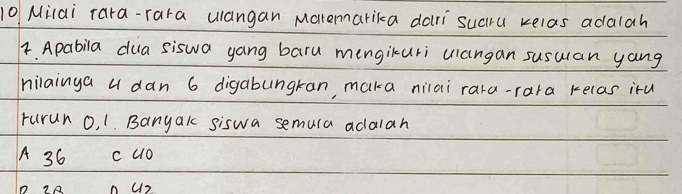 10. Nilai rata-rata ulangan Matematika dari suatu kelas adalah
7. Apabila dua siswa yang baru mengikuti ulangan susulan yang
nilainya 4 dan 6 digabungkan, maka nilai rata-rata kelas itu
turun 0,1. Banyak siswa semula adalah
A 36 C 40
B 38 D 42